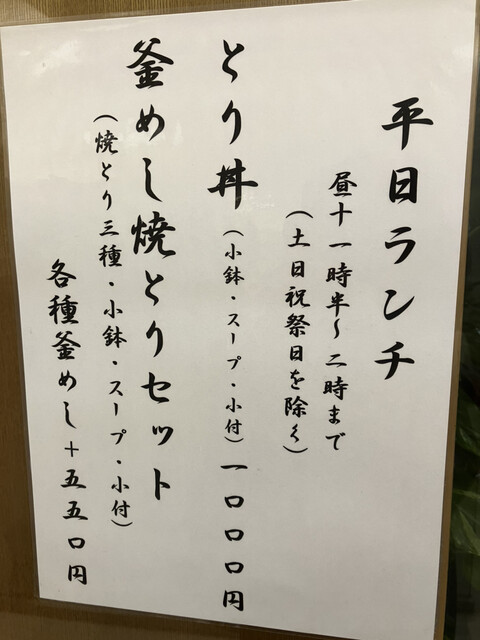 平日ランチ
昼十一時半~二時まで
(土日祝祭日を除く)
とり丼(小鉢・スープ・小付)一〇〇〇円
釜めし焼とりセット
(焼とり三種・小鉢・スープ・小付)
各種釜めし+五五〇円